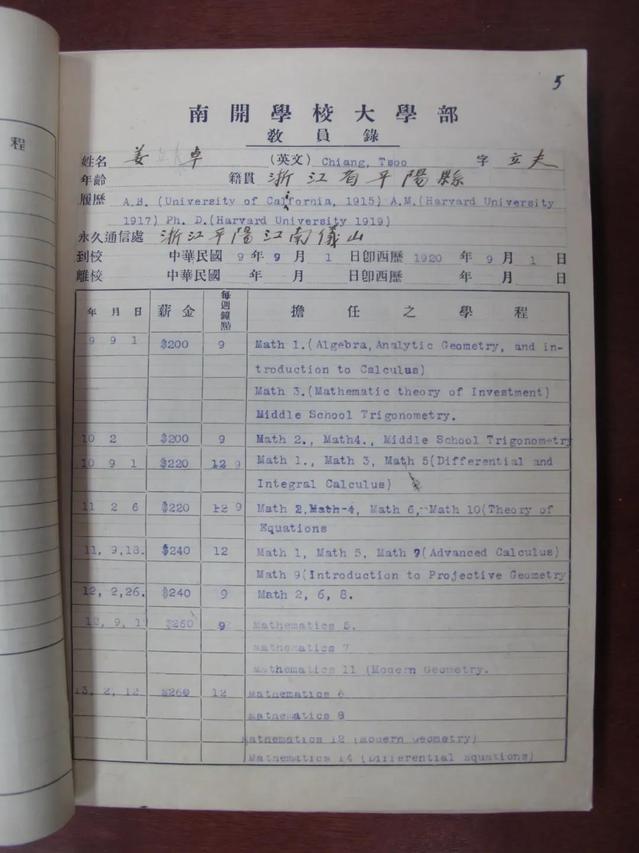 程
5
南開學校大學部
教員錄
姓名 姜立夫 卓 (英文) Chiang, Tsoo 字 立夫
年齡 籍貫 浙江省平陽縣
履歷 A.B. (University of California, 1915) A.M.(Harvard University
1917) Ph. D.(Harvard University 1919)
永久通信處 浙江平陽江南儀山
到校 中華民國 9 年 9 月 1 日卽西歷 1920 年 9 月 1 日
離校 中華民國 年 月 日卽西歷 年 月 日
年 月 日 薪金 每週鐘點 擔任之學程
9 9 1 $200 9 Math 1.(Algebra,Analytic Geometry, and in-
troduction to Calculus)
Math 3.(Mathematic theory of Investment)
Middle School Trigonometry.
10 2 $200 9 Math 2., Math4., Middle School Trigonometry
10 9 1 $220 12 9 Math 1., Math 3, Math 5(Differential and
Integral Calculus)
11 2 6 $220 12 9 Math 2,Math-4, Math 6, Math 10(Theory of
Equations
11, 9,18. $240 12 Math 1, Math 5, Math 7(Advanced Calculus)
Math 9(Introduction to Projective Geometry
12, 2,26. $240 9 Math 2, 6, 8.
12, 9, 1 $260 9 Mathematics 5.
Mathematics 7
Mathematics 11 (Modern Geometry.
13, 2, 12 $260 12 Mathematics 6
Mathematics 8
Mathematics 12 (Modern Geometry)
Mathematics 14 (Differential Equations)